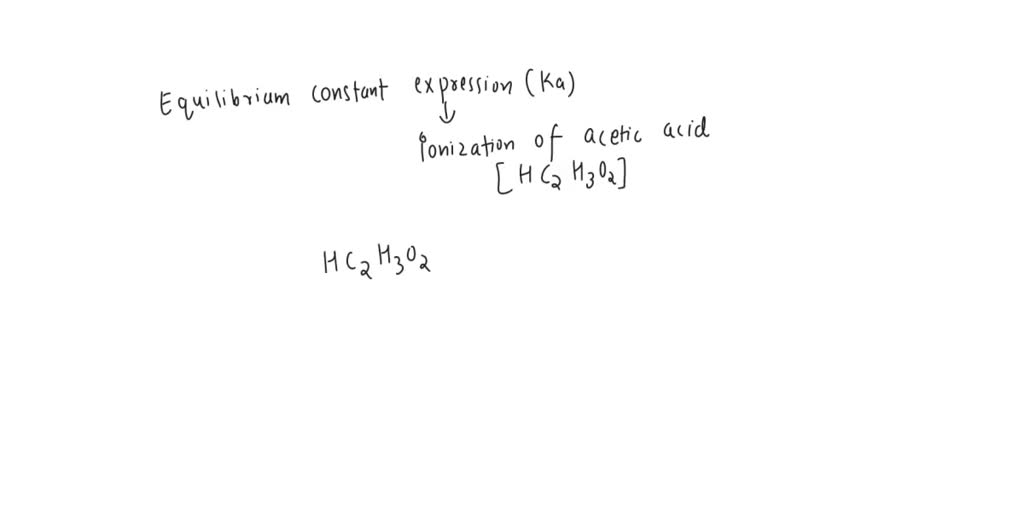 Equilibrium constant expression (Ka)
↓
Ionization of acetic acid
[HC₂H₃O₂]
HC₂H₃O₂